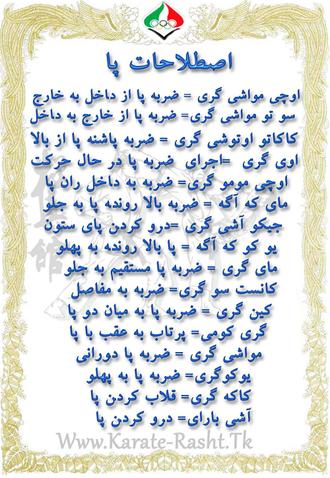 اصطلاحات پا
اوچی مواشی گری = ضربه پا از داخل به خارج
سو تو مواشی گری= ضربه پا از خارج به داخل
کاکاتو اوتوشی گری = ضربه پاشنه پا از بالا
اوی گری =اجرای ضربه پا در حال حرکت
اوچی مومو گری = ضربه به داخل ران پا
مای که آگه = ضربه بالا رونده پا به جلو
جیکو آشی گری =درو کردن پای ستون
یو کو که آگه = پا بالا رونده به پهلو
مای گری = ضربه پا مستقیم به جلو
کانست سو گری= ضربه به مفاصل
کین گری = ضربه پا به میان دو پا
گری کومی= پرتاب به عقب با پا
مواشی گری= ضربه پا دورانی
یوکوگری= ضربه پا به پهلو
کاکه گری= قلاب کردن پا
آشی بارای= درو کردن پا
Www.Karate-Rasht.Tk